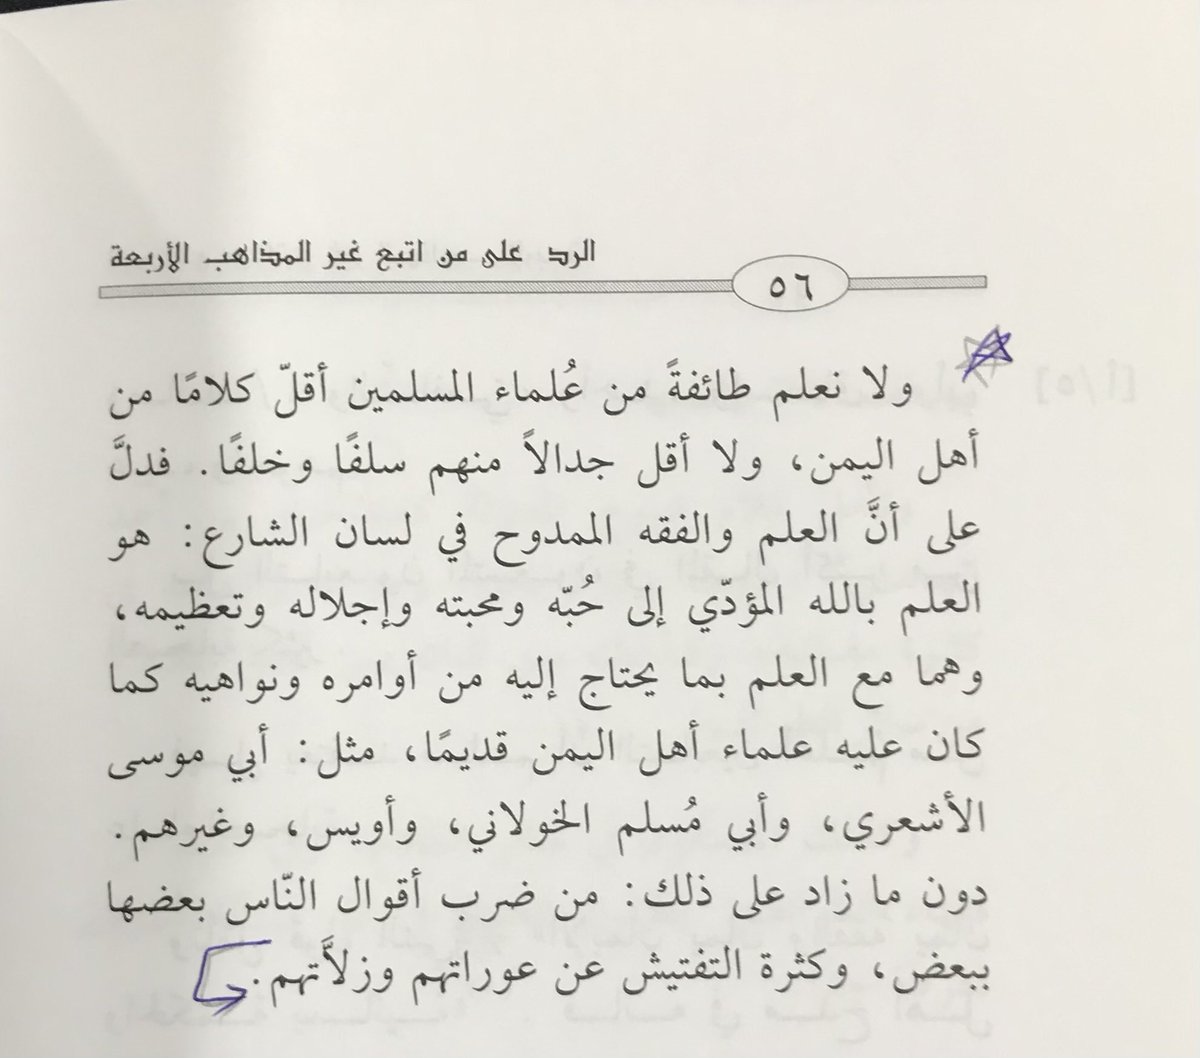 الرد على من اتبع غير المذاهب الأربعة
٥٦
ولا نعلم طائفةً من عُلماء المسلمين أقلّ كلامًا من
أهل اليمن، ولا أقل جدالاً منهم سلفًا وخلفًا. فدلَّ
على أنَّ العلم والفقه الممدوح في لسان الشارع: هو
العلم بالله المؤدّي إلى حُبّه ومحبته وإجلاله وتعظيمه،
وهما مع العلم بما يحتاج إليه من أوامره ونواهيه كما
كان عليه علماء أهل اليمن قديمًا، مثل: أبي موسى
الأشعري، وأبي مُسلم الخولاني، وأويس، وغيرهم.
دون ما زاد على ذلك: من ضرب أقوال النّاس بعضها
ببعض، وكثرة التفتيش عن عوراتهم وزلاَّتهم.